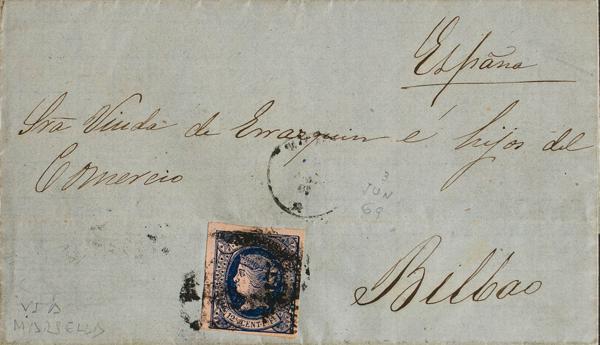 España
Sra Viuda de Errazquin é hijos del
Comercio
3
JUN
69
Bilbao
VIA
MARSELLA